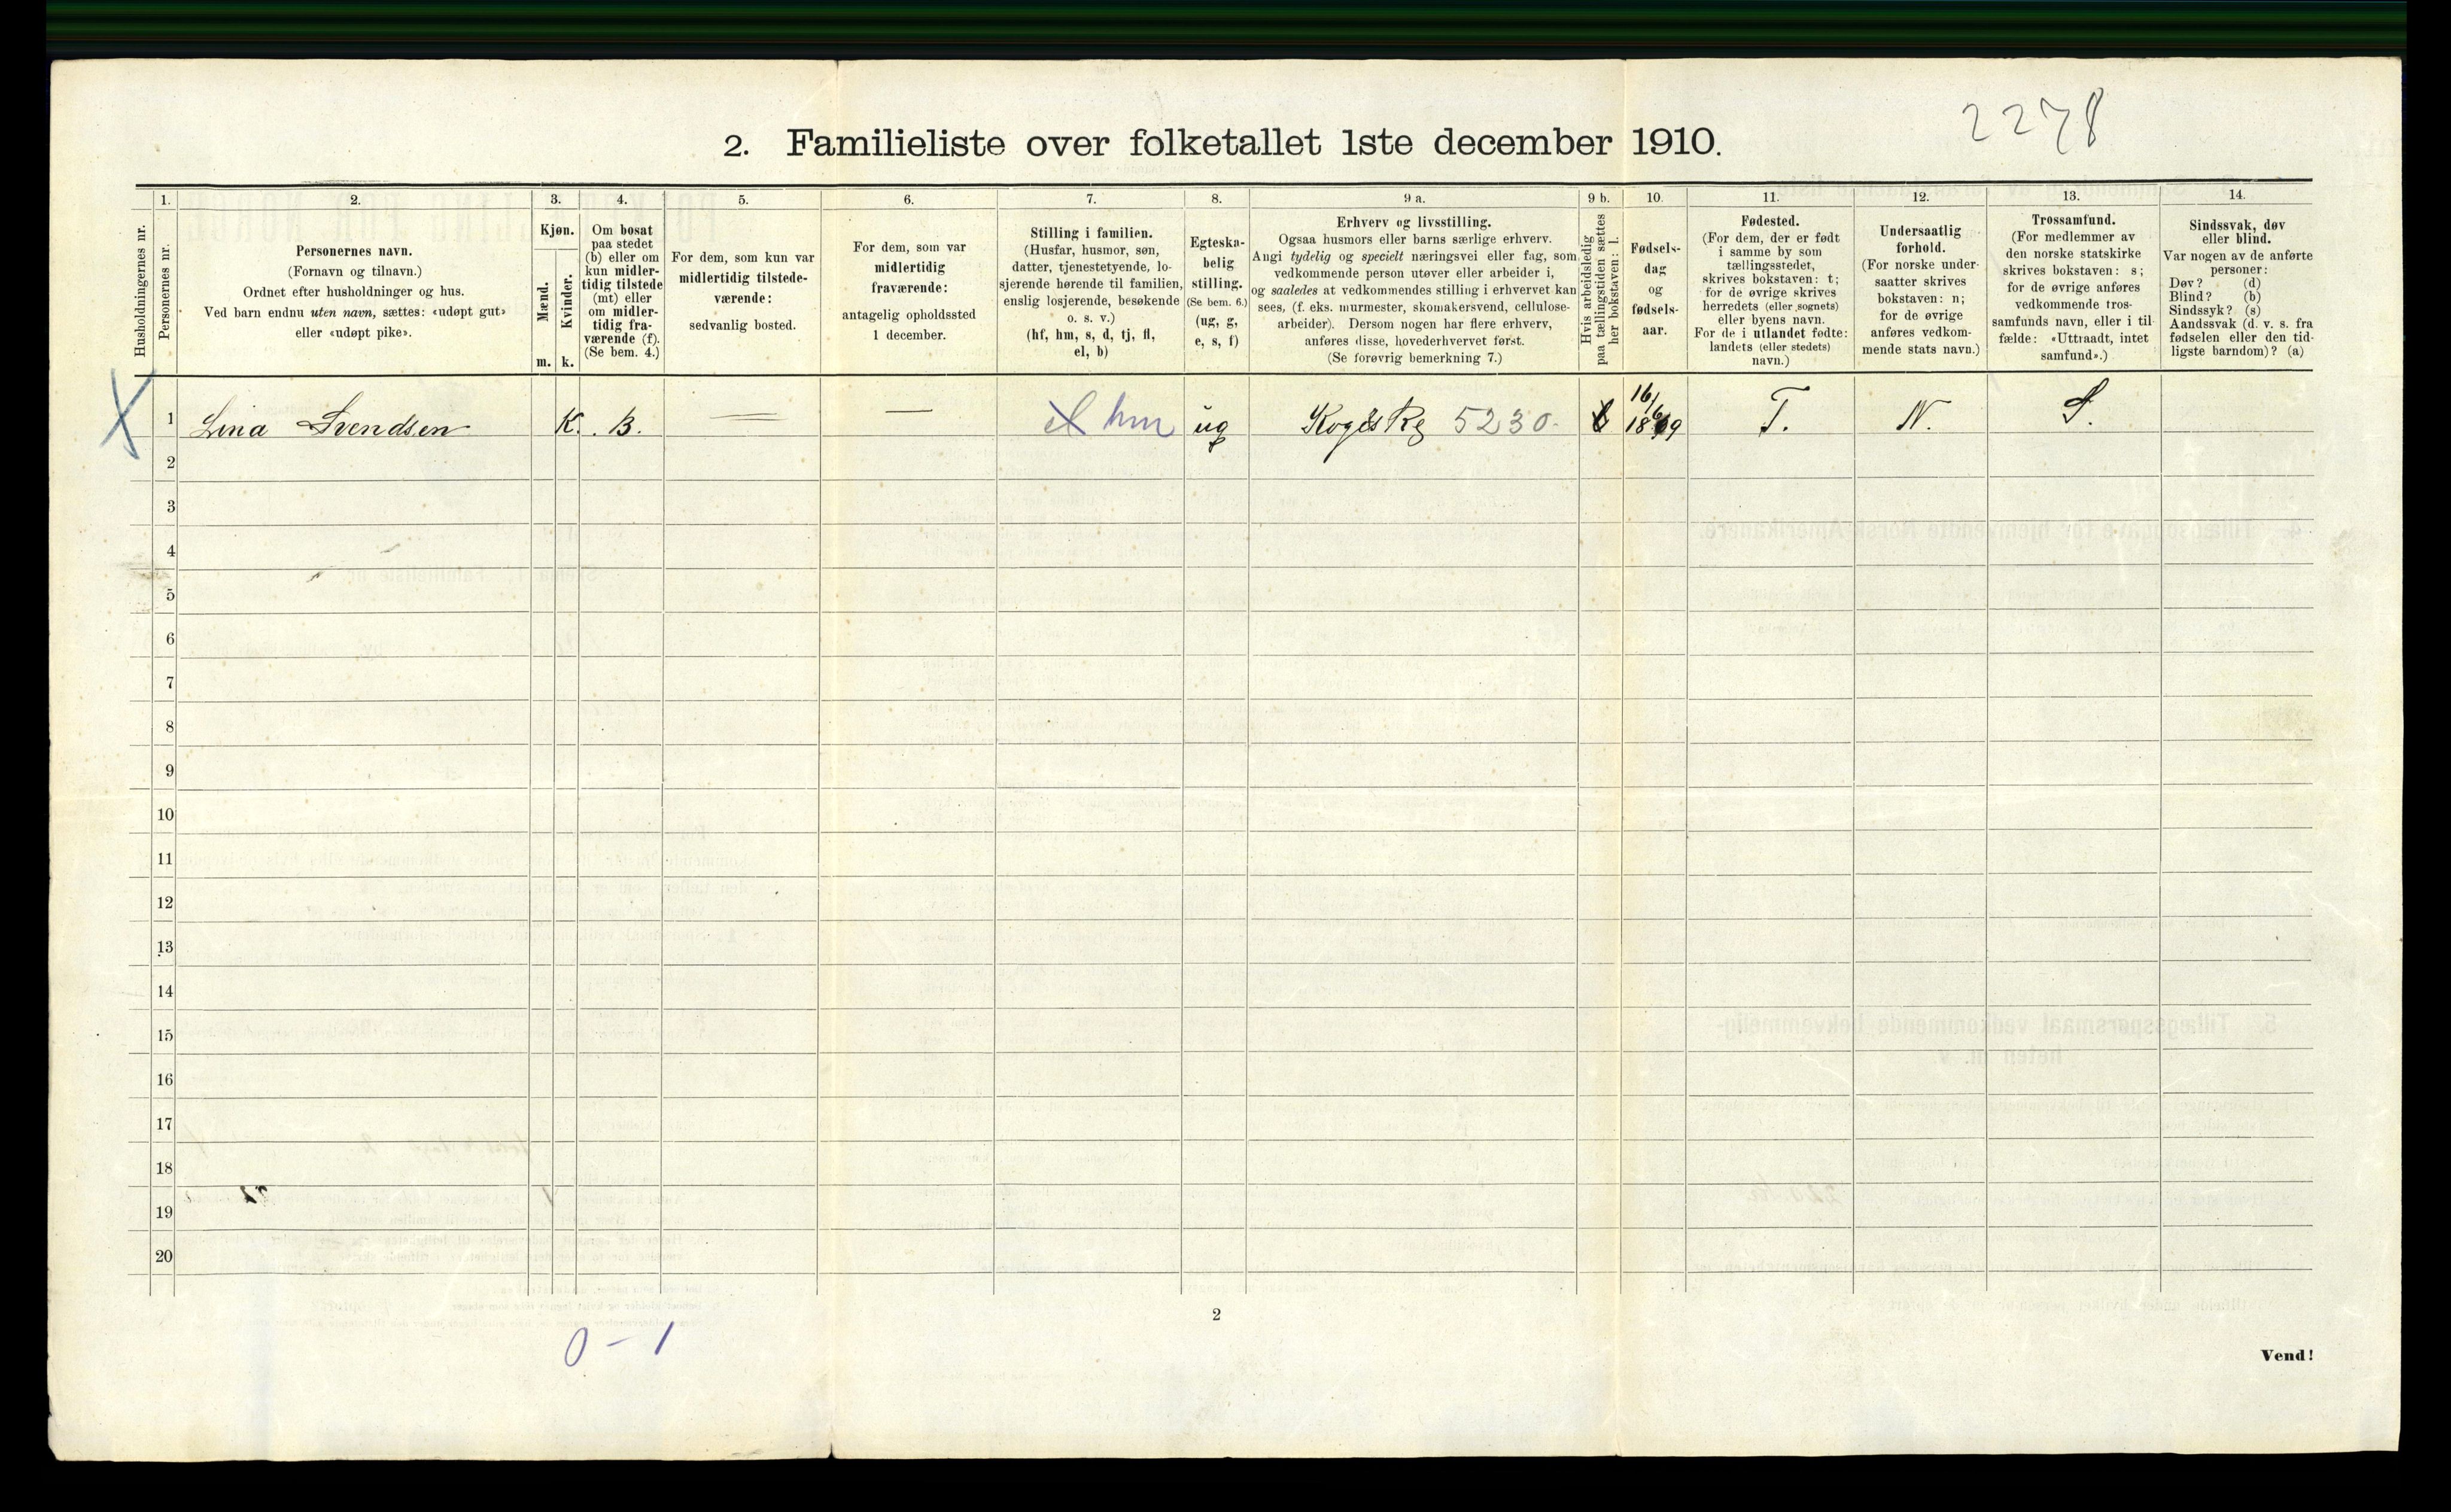 2278
2. Familieliste over folketallet 1ste december 1910.
Husholdningernes nr.
1.
Personernes nr.
2.
Personernes navn.
(Fornavn og tilnavn.)
Ordnet efter husholdninger og hus.
Ved barn endnu uten navn, sættes: «udøpt gut»
eller «udøpt pike».
3.
Kjøn.
Mænd.
Kvinder.
m. k.
4.
Om bosat
paa stedet
(b) eller om
kun midler-
tidig tilstede
(mt) eller
om midler-
tidig fra-
værende (f).
(Se bem. 4.)
5.
For dem, som kun var
midlertidig tilstede-
værende:
sedvanlig bosted.
6.
For dem, som var
midlertidig
fraværende:
antagelig opholdssted
1 december.
7.
Stilling i familien.
(Husfar, husmor, søn,
datter, tjenestetyende, lo-
sjerende hørende til familien,
enslig losjerende, besøkende
o. s. v.)
(hf, hm, s, d, tj, fl,
el, b)
8.
Egteska-
belig
stilling.
(Se bem. 6.)
(ug, g,
e, s, f)
9 a.
Erhverv og livsstilling.
Ogsaa husmors eller barns særlige erhverv.
Angi tydelig og specielt næringsvei eller fag, som
vedkommende person utøver eller arbeider i,
og saaledes at vedkommendes stilling i erhvervet kan
sees, (f. eks. murmester, skomakersvend, cellulose-
arbeider). Dersom nogen har flere erhverv,
anføres disse, hovederhvervet først.
(Se forøvrig bemerkning 7.)
9 b.
Hvis arbeidsledig
paa tællingstiden sættes
her bokstaven: l.
10.
Fødsels-
dag
og
fødsels-
aar.
11.
Fødested.
(For dem, der er født
i samme by som
tællingsstedet,
skrives bokstaven: t;
for de øvrige skrives
herredets (eller sognets)
eller byens navn.
For de i utlandet fødte:
landets (eller stedets)
navn.)
12.
Undersaatlig
forhold.
(For norske under-
saatter skrives
bokstaven: n;
for de øvrige
anføres vedkom-
mende stats navn.)
13.
Trossamfund.
(For medlemmer av
den norske statskirke
skrives bokstaven: s;
for de øvrige anføres
vedkommende tros-
samfunds navn, eller i til-
fælde: «Uttraadt, intet
samfund».)
14.
Sindssvak, døv
eller blind.
Var nogen av de anførte
personer:
Døv? (d)
Blind? (b)
Sindssyk? (s)
Aandssvak (d. v. s. fra
fødselen eller den tid-
ligste barndom)? (a)
X 1 Lina Svendsen K. B. — — el hm ug 5230. 16/6 1869 T. N. S.
2
3
4
5
6
7
8
9
10
11
12
13
14
15
16
17
18
19
20
2
0 - 1
Vend!